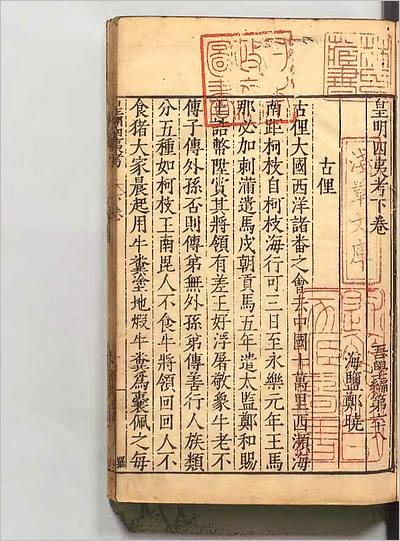 皇明四夷考下卷
吾學編第六十八
海鹽鄭曉
古俚
古俚大國西洋諸番之會去中國十萬里西瀕海
南距柯枝自柯枝海行可三日至永樂元年王馬
那必加剌滿遣馬戌朝貢馬五年遣太監鄭和賜
王誥幣陞賞其將領有差王好浮屠敬象牛老不
傳子傳外孫否則傳弟無外孫弟傳善行人族類
分五種如柯枝王南毘人不食牛將領回回人不
食猪大家晨起用牛糞塗地煅牛糞爲囊佩之每
淺草文庫
藏書
圖書